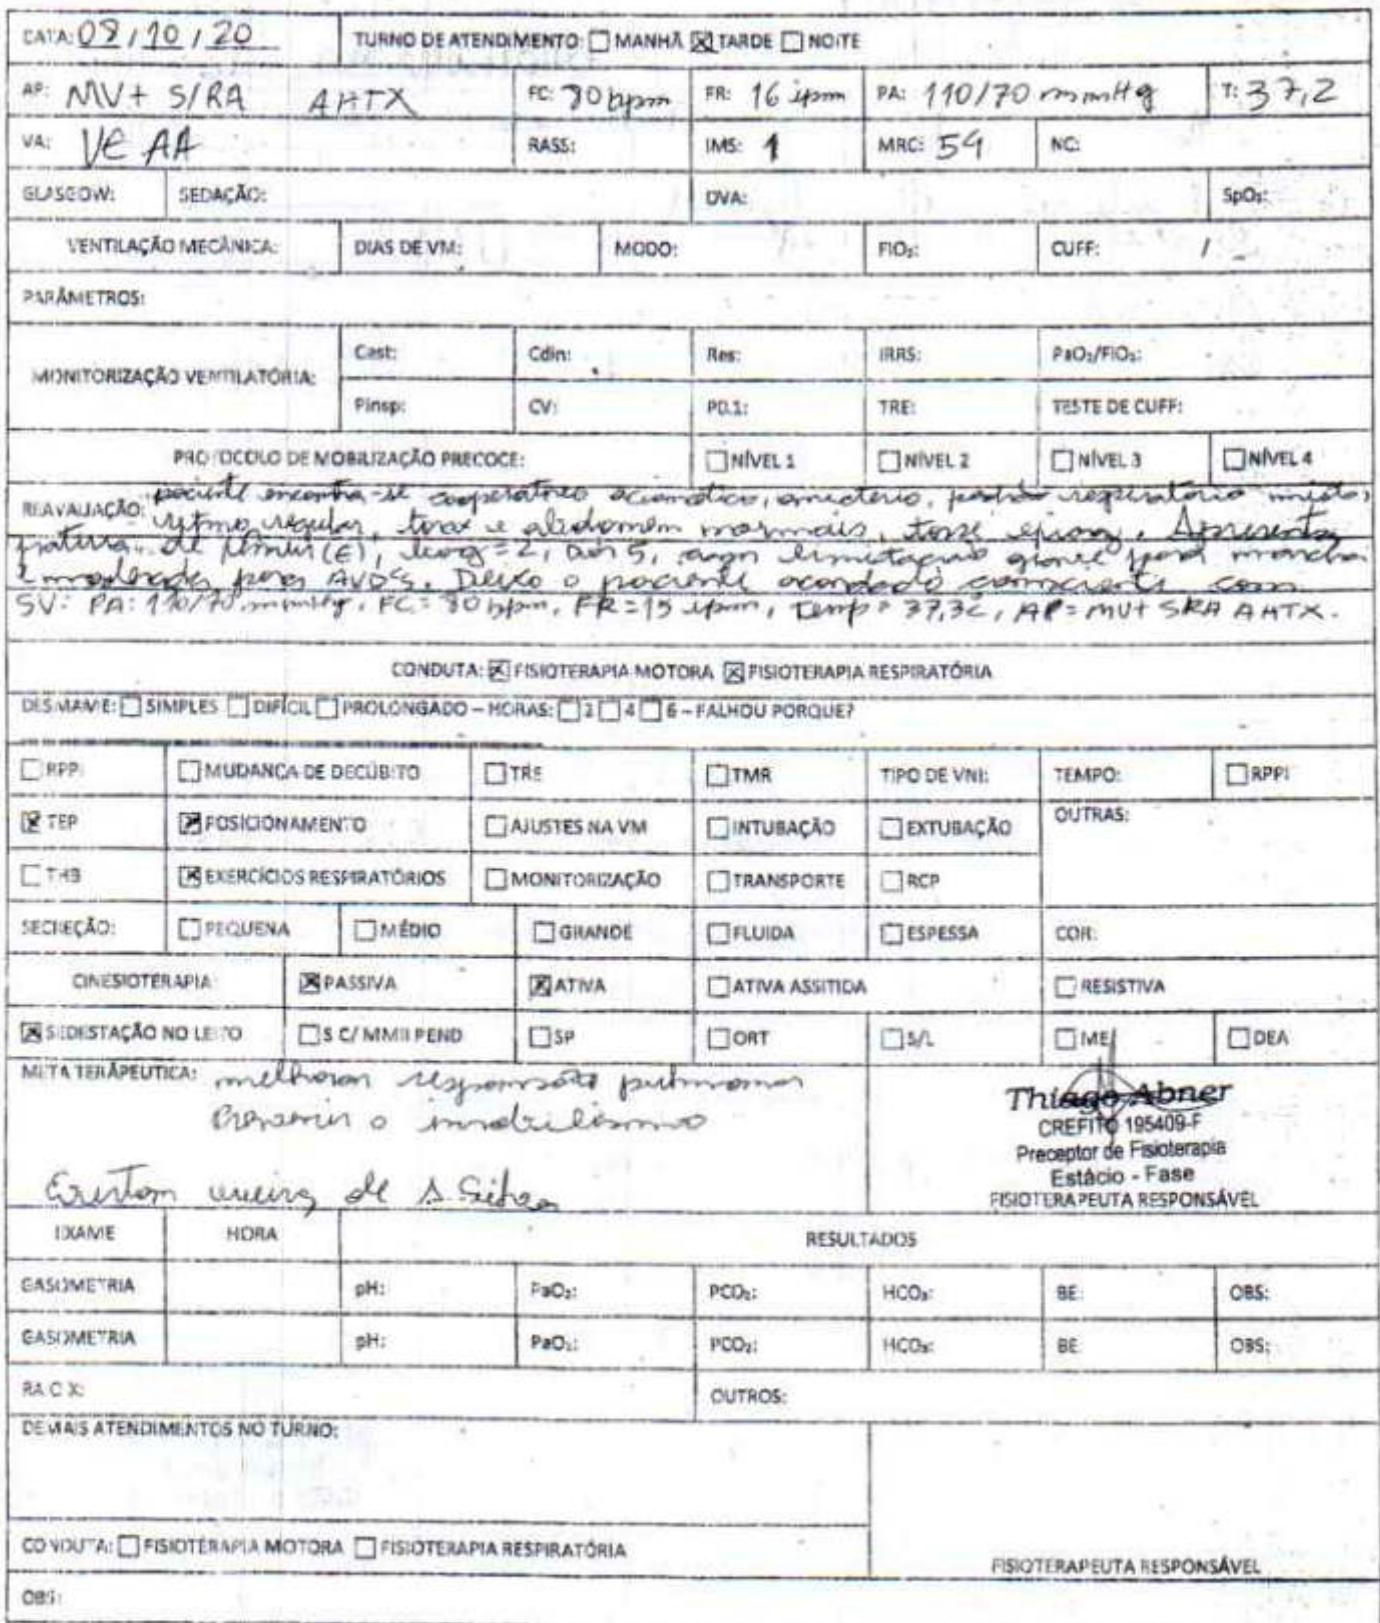 DATA: 08/10/20 TURNO DE ATENDIMENTO: ☐ MANHÃ ☒ TARDE ☐ NOITE
AP: MV+ S/RA AHTX FC: 80 bpm FR: 16 ipm PA: 110/70 mmHg T: 37,2
VA: VE AA RASS: IMS: 1 MRC: 54 NC:
GLASGOW: SEDAÇÃO: DVA: SpO₂:
VENTILAÇÃO MECÂNICA: DIAS DE VM: MODO: FIO₂: CUFF: /
PARÂMETROS:
MONITORIZAÇÃO VENTILATÓRIA: Cest: Cdin: Res: IRRS: PaO₂/FIO₂:
Pinsp: CV: P0.1: TRE: TESTE DE CUFF:
PROTOCOLO DE MOBILIZAÇÃO PRECOCE: ☐ NÍVEL 1 ☐ NÍVEL 2 ☐ NÍVEL 3 ☐ NÍVEL 4
REAVALIAÇÃO: paciente encontra-se cooperativo acianotico, anictério, padrão respiratório misto,
rytmo regular, torax e abdomem normais, tosse eficaz. Apresenta
fratura de fêmur (E), =2, 5, limitação grave para marcha
e moderada para AVD'S. Deixo o paciente acordado consciente com
SV: PA: 110/70 mmHg, FC = 80 bpm, FR = 15 ipm, Temp = 37,3C, AP = MV+ SRA AHTX.
CONDUTA: ☒ FISIOTERAPIA MOTORA ☒ FISIOTERAPIA RESPIRATÓRIA
DESMAME: ☐ SIMPLES ☐ DIFÍCIL ☐ PROLONGADO – HORAS: ☐ 2 ☐ 4 ☐ 6 – FALHOU PORQUE?
☐ RPPI ☐ MUDANÇA DE DECÚBITO ☐ TRE ☐ TMR TIPO DE VNI: TEMPO: ☐ RPPI
☒ TEP ☒ POSICIONAMENTO ☐ AJUSTES NA VM ☐ INTUBAÇÃO ☐ EXTUBAÇÃO OUTRAS:
☐ THB ☒ EXERCÍCIOS RESPIRATÓRIOS ☐ MONITORIZAÇÃO ☐ TRANSPORTE ☐ RCP
SECREÇÃO: ☐ PEQUENA ☐ MÉDIO ☐ GRANDE ☐ FLUIDA ☐ ESPESSA COR:
CINESIOTERAPIA: ☒ PASSIVA ☒ ATIVA ☐ ATIVA ASSITIDA ☐ RESISTIVA
☒ SEDESTAÇÃO NO LEITO ☐ S C/ MMII PEND ☐ SP ☐ ORT ☐ S/L ☐ ME ☐ DEA
META TERÂPEUTICA: melhorar pulmonar
o imobilismo
de S. Silva
Thiago Abner
CREFITO 195409-F
Preceptor de Fisioterapia
Estácio - Fase
FISIOTERAPEUTA RESPONSÁVEL
EXAME HORA RESULTADOS
GASOMETRIA pH: PaO₂: PCO₂: HCO₃: BE: OBS:
GASOMETRIA pH: PaO₂: PCO₂: HCO₃: BE: OBS:
RAIO X: OUTROS:
DEMAIS ATENDIMENTOS NO TURNO:
CONDUTA: ☐ FISIOTERAPIA MOTORA ☐ FISIOTERAPIA RESPIRATÓRIA
FISIOTERAPEUTA RESPONSÁVEL
OBS: